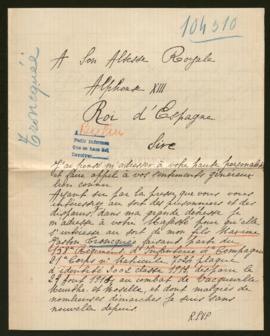 104310
Troncquée
A Son Altesse Royale
Alphonse XIII
Roi d'Espagne
Sire
J'ai pensé m'adresser à votre haute personnalité
et faire appel à vos sentiments généreux
bien connus
Ayant su par la presse que vous vous
intéressez au sort des prisonniers et des
disparus dans ma grande détresse je
m'adresse à votre Majesté pour qu'elle
s'intéresse au sort de mon fils Maxime
Gaston Troncquée faisant partie du
Régiment d'Infanterie Compagnie
21e Corps Matricule plaque
d'identité classe 1913 disparu le
29 Août 1914 au combat de
Meurthe et Moselle et dont malgré de
nombreuses démarches je suis sans
nouvelles depuis
R.S.V.P